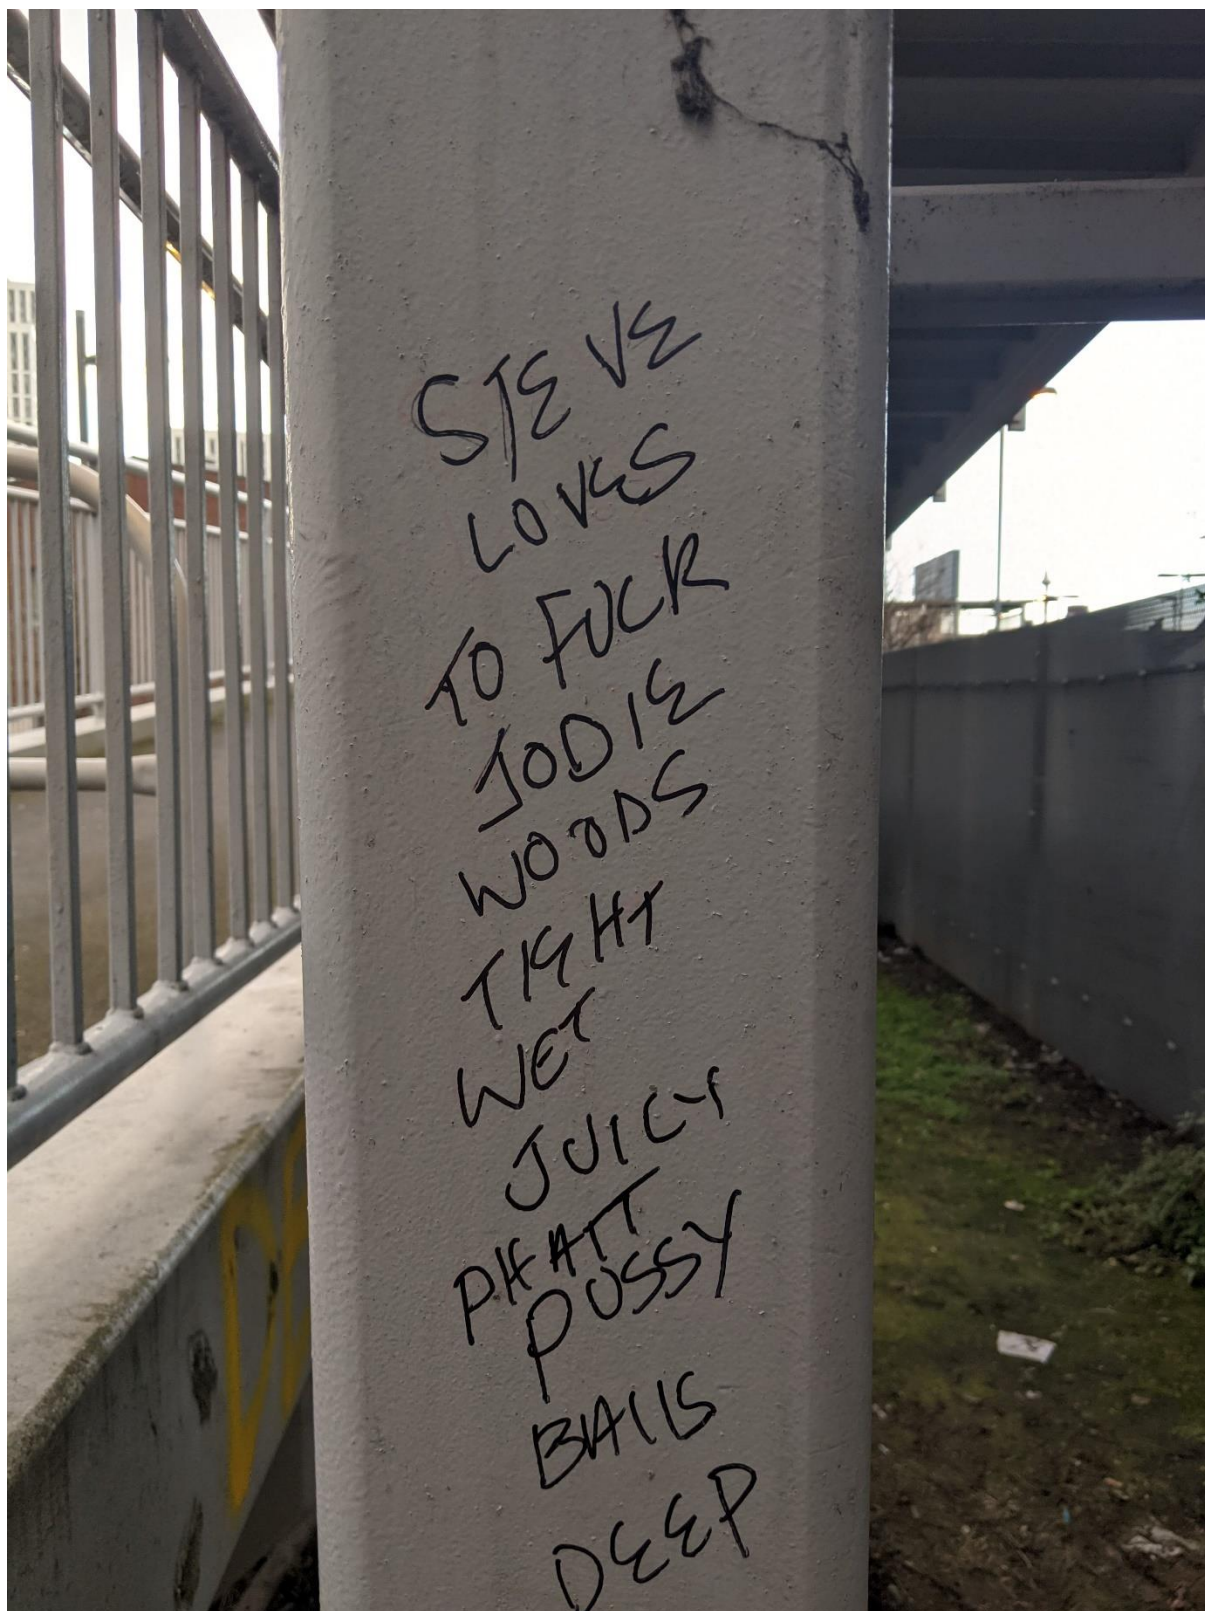 STEVE
LOVES
TO FUCK
JODIE
WOODS
TIGHT
WET
JUICY
PHATT
PUSSY
BALLS
DEEP